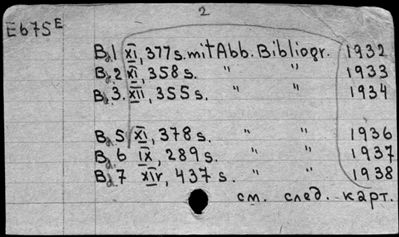 2
E675E
Bd.1 XI, 377s. mit Abb. Bibliogr. 1932
Bd.2 XI, 358s. " " 1933
Bd.3. XII, 355s. " " 1934
Bd.5 XI, 378s. " " 1936
Bd.6 IX, 289s. " " 1937
Bd.7 XIV, 437s. " " 1938
см. след. карт.